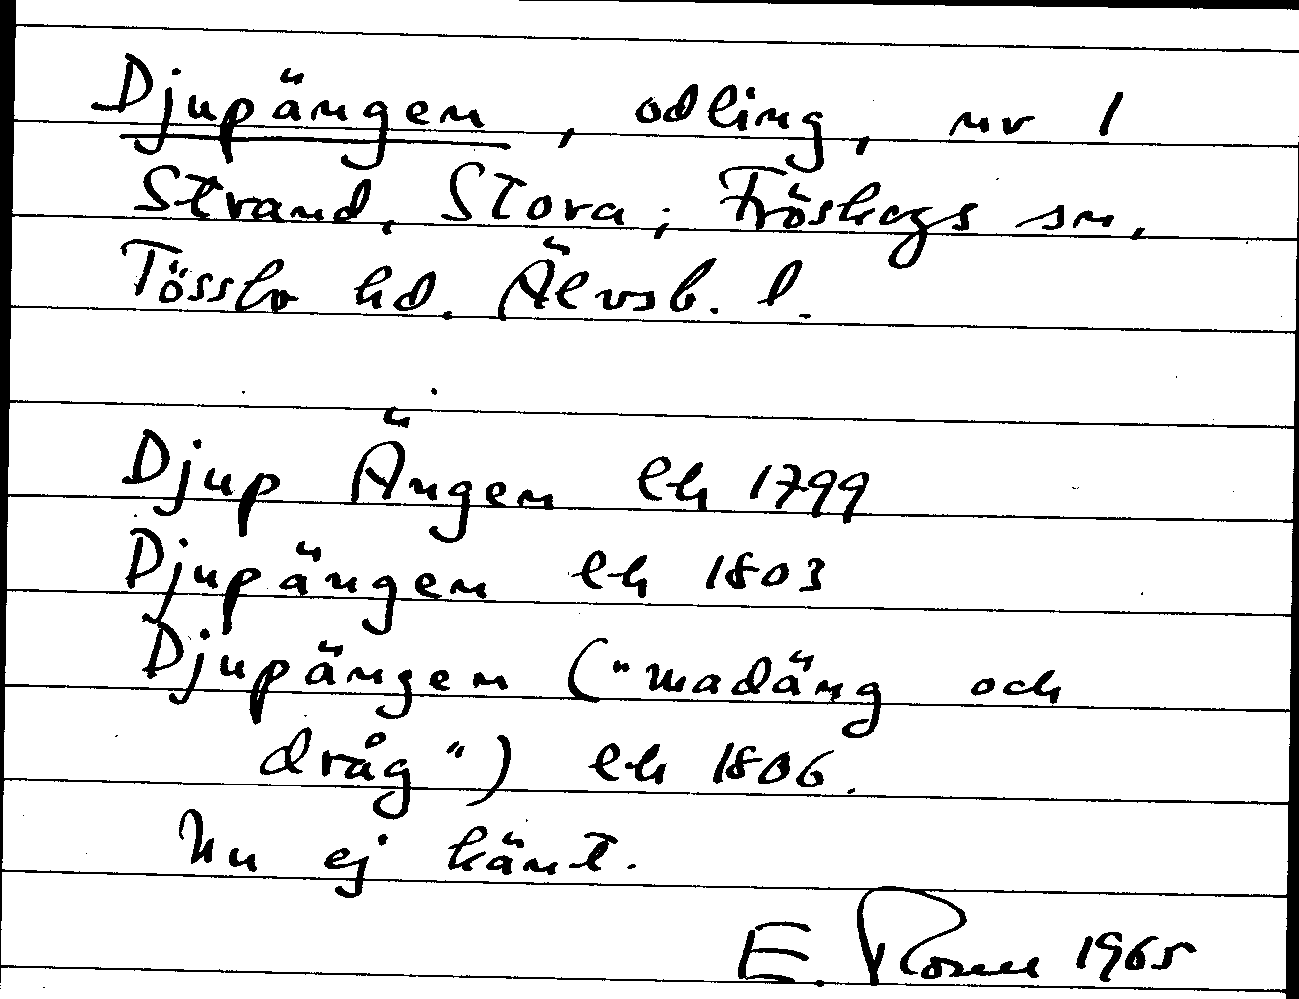 Djupängen, odling, nr 1
Strand, Stora; Fröskogs sn,
Tössbo hd. Älvsb. l.
Djup Ängen lh 1799
Djupängen lh 1803
Djupängen ("madäng och
dråg") lh 1806.
Nu ej känt.
E. 1965